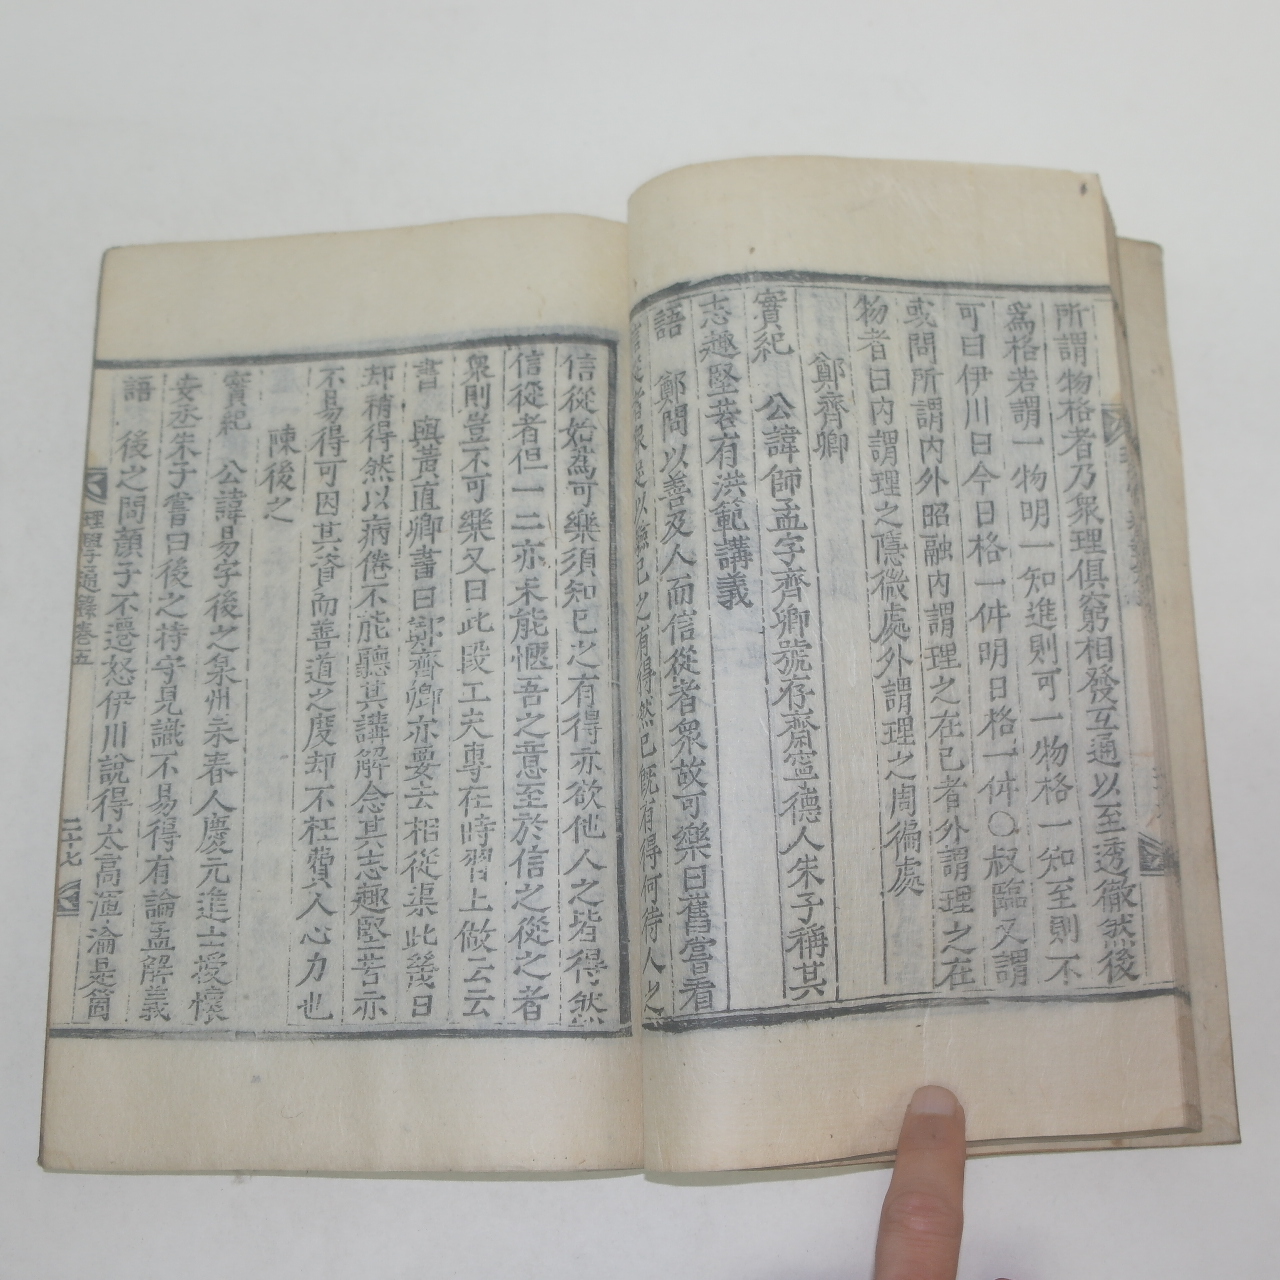 所謂物格者乃衆理俱窮相發互通以至透徹然後
爲格若謂一物明一知進則可一物格一知至則不
可曰伊川曰今日格一件明日格一件〇叔臨又謂
或問所謂內外昭融內謂理之在己者外謂理之在
物者曰內謂理之隱微處外謂理之周徧處
鄭齊卿
實紀 公諱師孟字齊卿號存齋寧德人朱子稱其
志趣堅苦有洪範講義
語 鄭問以善及人而信從者衆故可樂曰舊嘗看
信從者衆足以驗己之有得然己旣有得何待人之
信從始爲可樂須知己之有得亦欲他人之皆得然
信從者但一二亦未能愜吾之意至於信之從之者
衆則豈不可樂又曰此段工夫專在時習上做云云
書 與黃直卿書曰鄭齊卿亦要去相從渠此幾日
却稍得然以病倦不能聽其講解念其志趣堅苦亦
不易得可因其資而善道之度却不枉費人心力也
陳後之
實紀 公諱易字後之泉州永春人慶元進士授懷
安丞朱子嘗曰後之持守見識不易得有論孟解義
語 後之問顏子不遷怒伊川說得太高渾淪是箇
理學通錄卷五
二十七